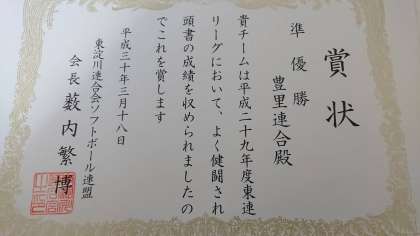 賞状
準優勝
豊里連合殿
貴チームは平成二十九年度東連
リーグにおいて、よく健闘され
頭書の成績を収められましたの
でこれを賞します
平成三十年三月十八日
東淀川連合会ソフトボール連盟
会長 薮内繁博